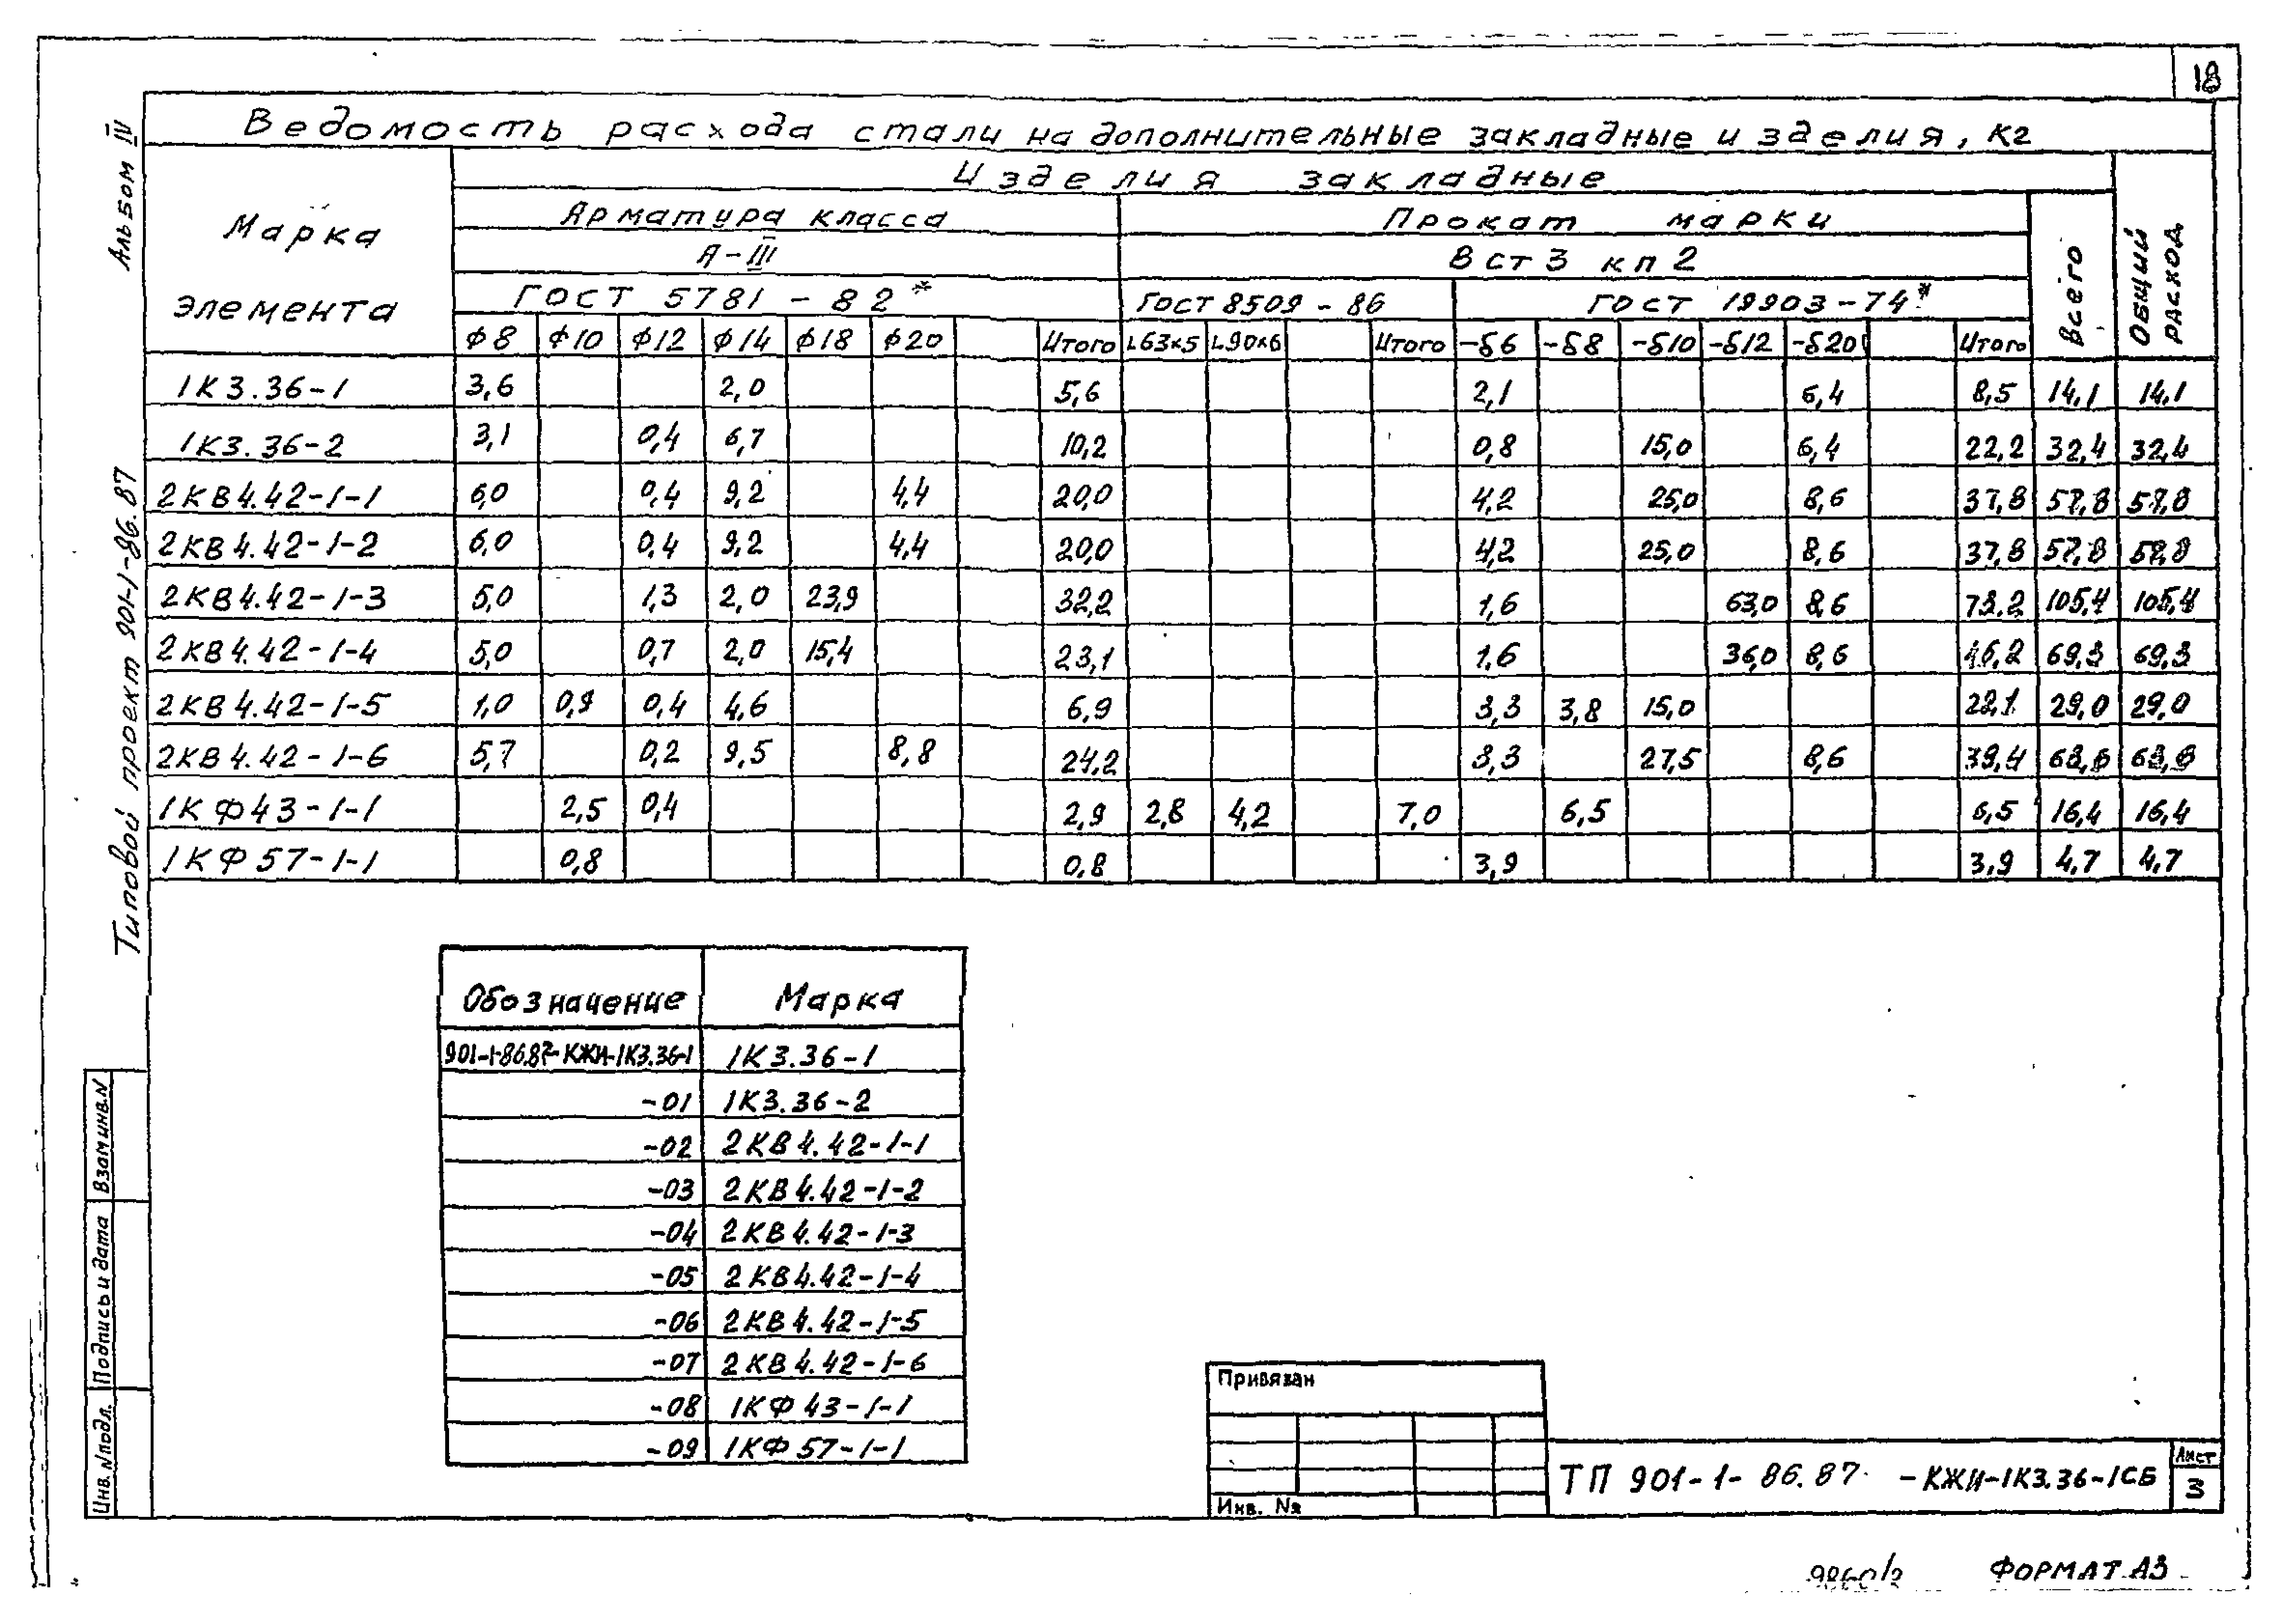 18
Ведомость расхода стали на дополнительные закладные изделия, кг
Марка элемента
Изделия закладные
Общий расход
Арматура класса
Прокат марки
Всего
А-III
Вст3 кп2
ГОСТ 5781-82*
ГОСТ 8509-86
ГОСТ 19903-74*
ф8 ф10 ф12 ф14 ф18 ф20 Итого L63x5 L90x6 Итого -δ6 -δ8 -δ10 -δ12 -δ20 Итого
1К3.36-1 3,6 2,0 5,6 2,1 6,4 8,5 14,1 14,1
1К3.36-2 3,1 0,4 6,7 10,2 0,8 15,0 6,4 22,2 32,4 32,4
2КВ4.42-1-1 6,0 0,4 9,2 4,4 20,0 4,2 25,0 8,6 37,8 57,8 57,8
2КВ4.42-1-2 6,0 0,4 9,2 4,4 20,0 4,2 25,0 8,6 37,8 57,8 57,8
2КВ4.42-1-3 5,0 1,3 2,0 23,9 32,2 1,6 63,0 8,6 73,2 105,4 105,4
2КВ4.42-1-4 5,0 0,7 2,0 15,4 23,1 1,6 36,0 8,6 46,2 69,3 69,3
2КВ4.42-1-5 1,0 0,9 0,4 4,6 6,9 3,3 3,8 15,0 22,1 29,0 29,0
2КВ4.42-1-6 5,7 0,2 9,5 8,8 24,2 3,3 27,5 8,6 39,4 63,6 63,6
1КФ43-1-1 2,5 0,4 2,9 2,8 4,2 7,0 6,5 6,5 16,4 16,4
1КФ57-1-1 0,8 0,8 3,9 3,9 4,7 4,7
Обозначение Марка
901-1-86.87-КЖИ-1К3.36-1 1К3.36-1
-01 1К3.36-2
-02 2КВ4.42-1-1
-03 2КВ4.42-1-2
-04 2КВ4.42-1-3
-05 2КВ4.42-1-4
-06 2КВ4.42-1-5
-07 2КВ4.42-1-6
-08 1КФ43-1-1
-09 1КФ57-1-1
Альбом IV
Типовой проект 901-1-86.87
Взам инв.N
Подпись и дата
Инв. N подл.
Привязан
Инв. №
ТП 901-1-86.87 -КЖИ-1К3.36-1СБ
Лист
3
ФОРМАТ А3